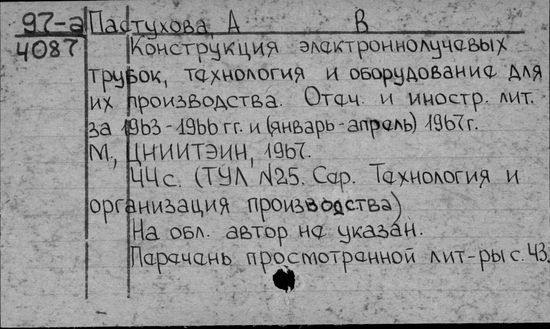 97-а Пастухова, А В
4087 Конструкция электроннолучевых
трубок, технология и оборудование для
их производства. Отеч. и иностр. лит.
за 1963-1966 гг. и (январь-апрель) 1967г.
М, ЦНИИТЭИН, 1967.
44с. (ТУЛ №25. Сер. Технология и
организация производства)
На обл. автор не указан.
Перечень просмотренной лит-ры с. 43.